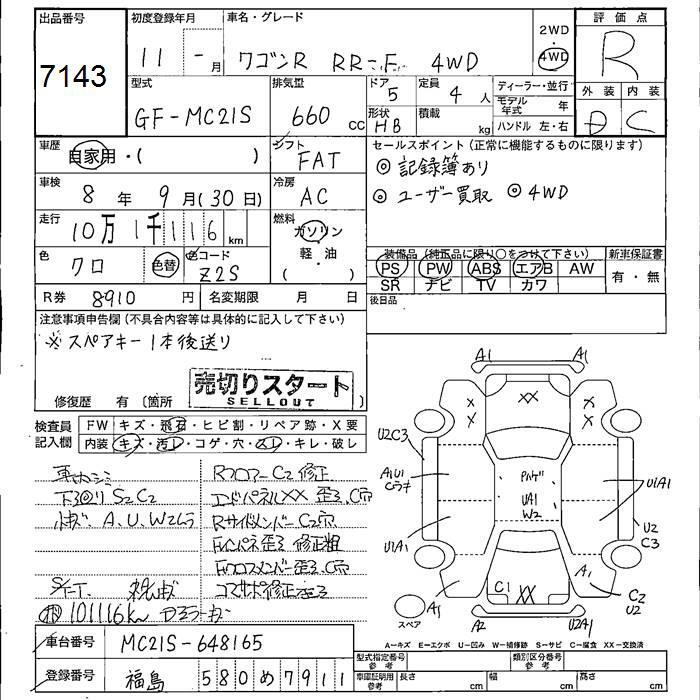 出品番号 初度登録年月 車名・グレード 2WD 評価点
7143 11 - 月 ワゴンR RR-F 4WD 4WD R
型式 排気量 ドア 5 定員 4 人 ディーラー・並行 外装 内装
GF-MC21S 660 cc 形状 HB 積載 kg モデル年式 年 D C
ハンドル 左・右
車歴 自家用・( ) シフト FAT セールスポイント (正常に機能するものに限ります)
◎ 記録簿あり
車検 8 年 9 月(30日) 冷房 AC ◎ ユーザー買取 ◎ 4WD
走行 10万 1千 116 km 燃料 ガソリン
軽・油
( )
色 クロ 色替 色コード Z2S 装備品 (純正品に限り○をつけて下さい) 新車保証書
PS PW ABS エアB AW 有・無
SR ナビ TV カワ
R券 8910 円 名変期限 月 日 後日品
注意事項申告欄 (不具合内容等は具体的に記入して下さい)
※スペアキー1本後送り
修復歴 有 (箇所 )
売切りスタート
SELLOUT
検査員記入欄 FW キズ・飛石・ヒビ割・リペア跡・X要
内装 キズ・汚レ・コゲ・穴・スレ・キレ・破レ
RフロアーC2 修正
S2C2 エンドパネルXX 歪ミ、C穴
A、U、W2ムラ RサイドメンバーC2穴
修正粗
101116km
A1 A1
XX
X X X X
U2C3
A1U1
Cラチ
U1A1
U1A1
UA1
W2
U2
C3
C1 XX
A1 A1
C2
U2
A2 U2A1
スペア
A-キズ E-エクボ U-凹み W-補修跡 S-サビ C-腐食 XX-交換済
車台番号 MC21S-648165
登録番号 福島 580 め 7911
型式指定番号 参考 類別区分番号 参考
車庫証明用 参考 長さ cm 幅 cm 高さ cm